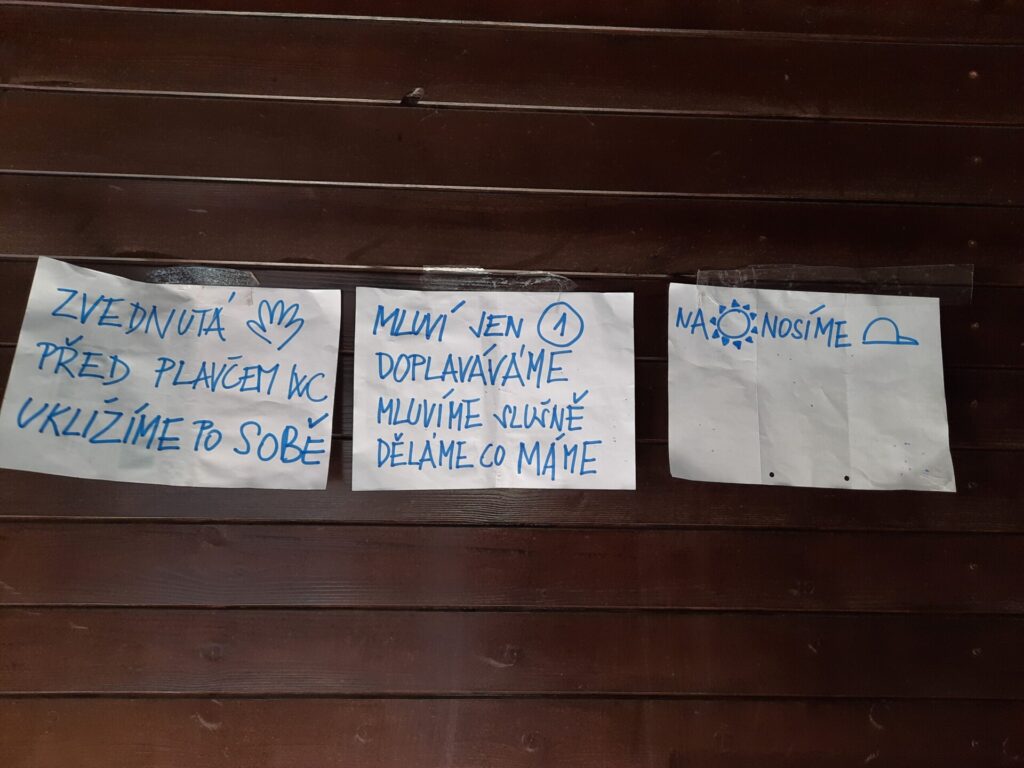 ZVEDNUTÁ
PŘED PLAVČEM WC
UKLIŽÍME PO SOBĚ
MLUVÍ JEN 1
DOPLAVÁVÁME
MLUVÍME SLUŠNĚ
DĚLÁME CO MÁME
NA NOSÍME